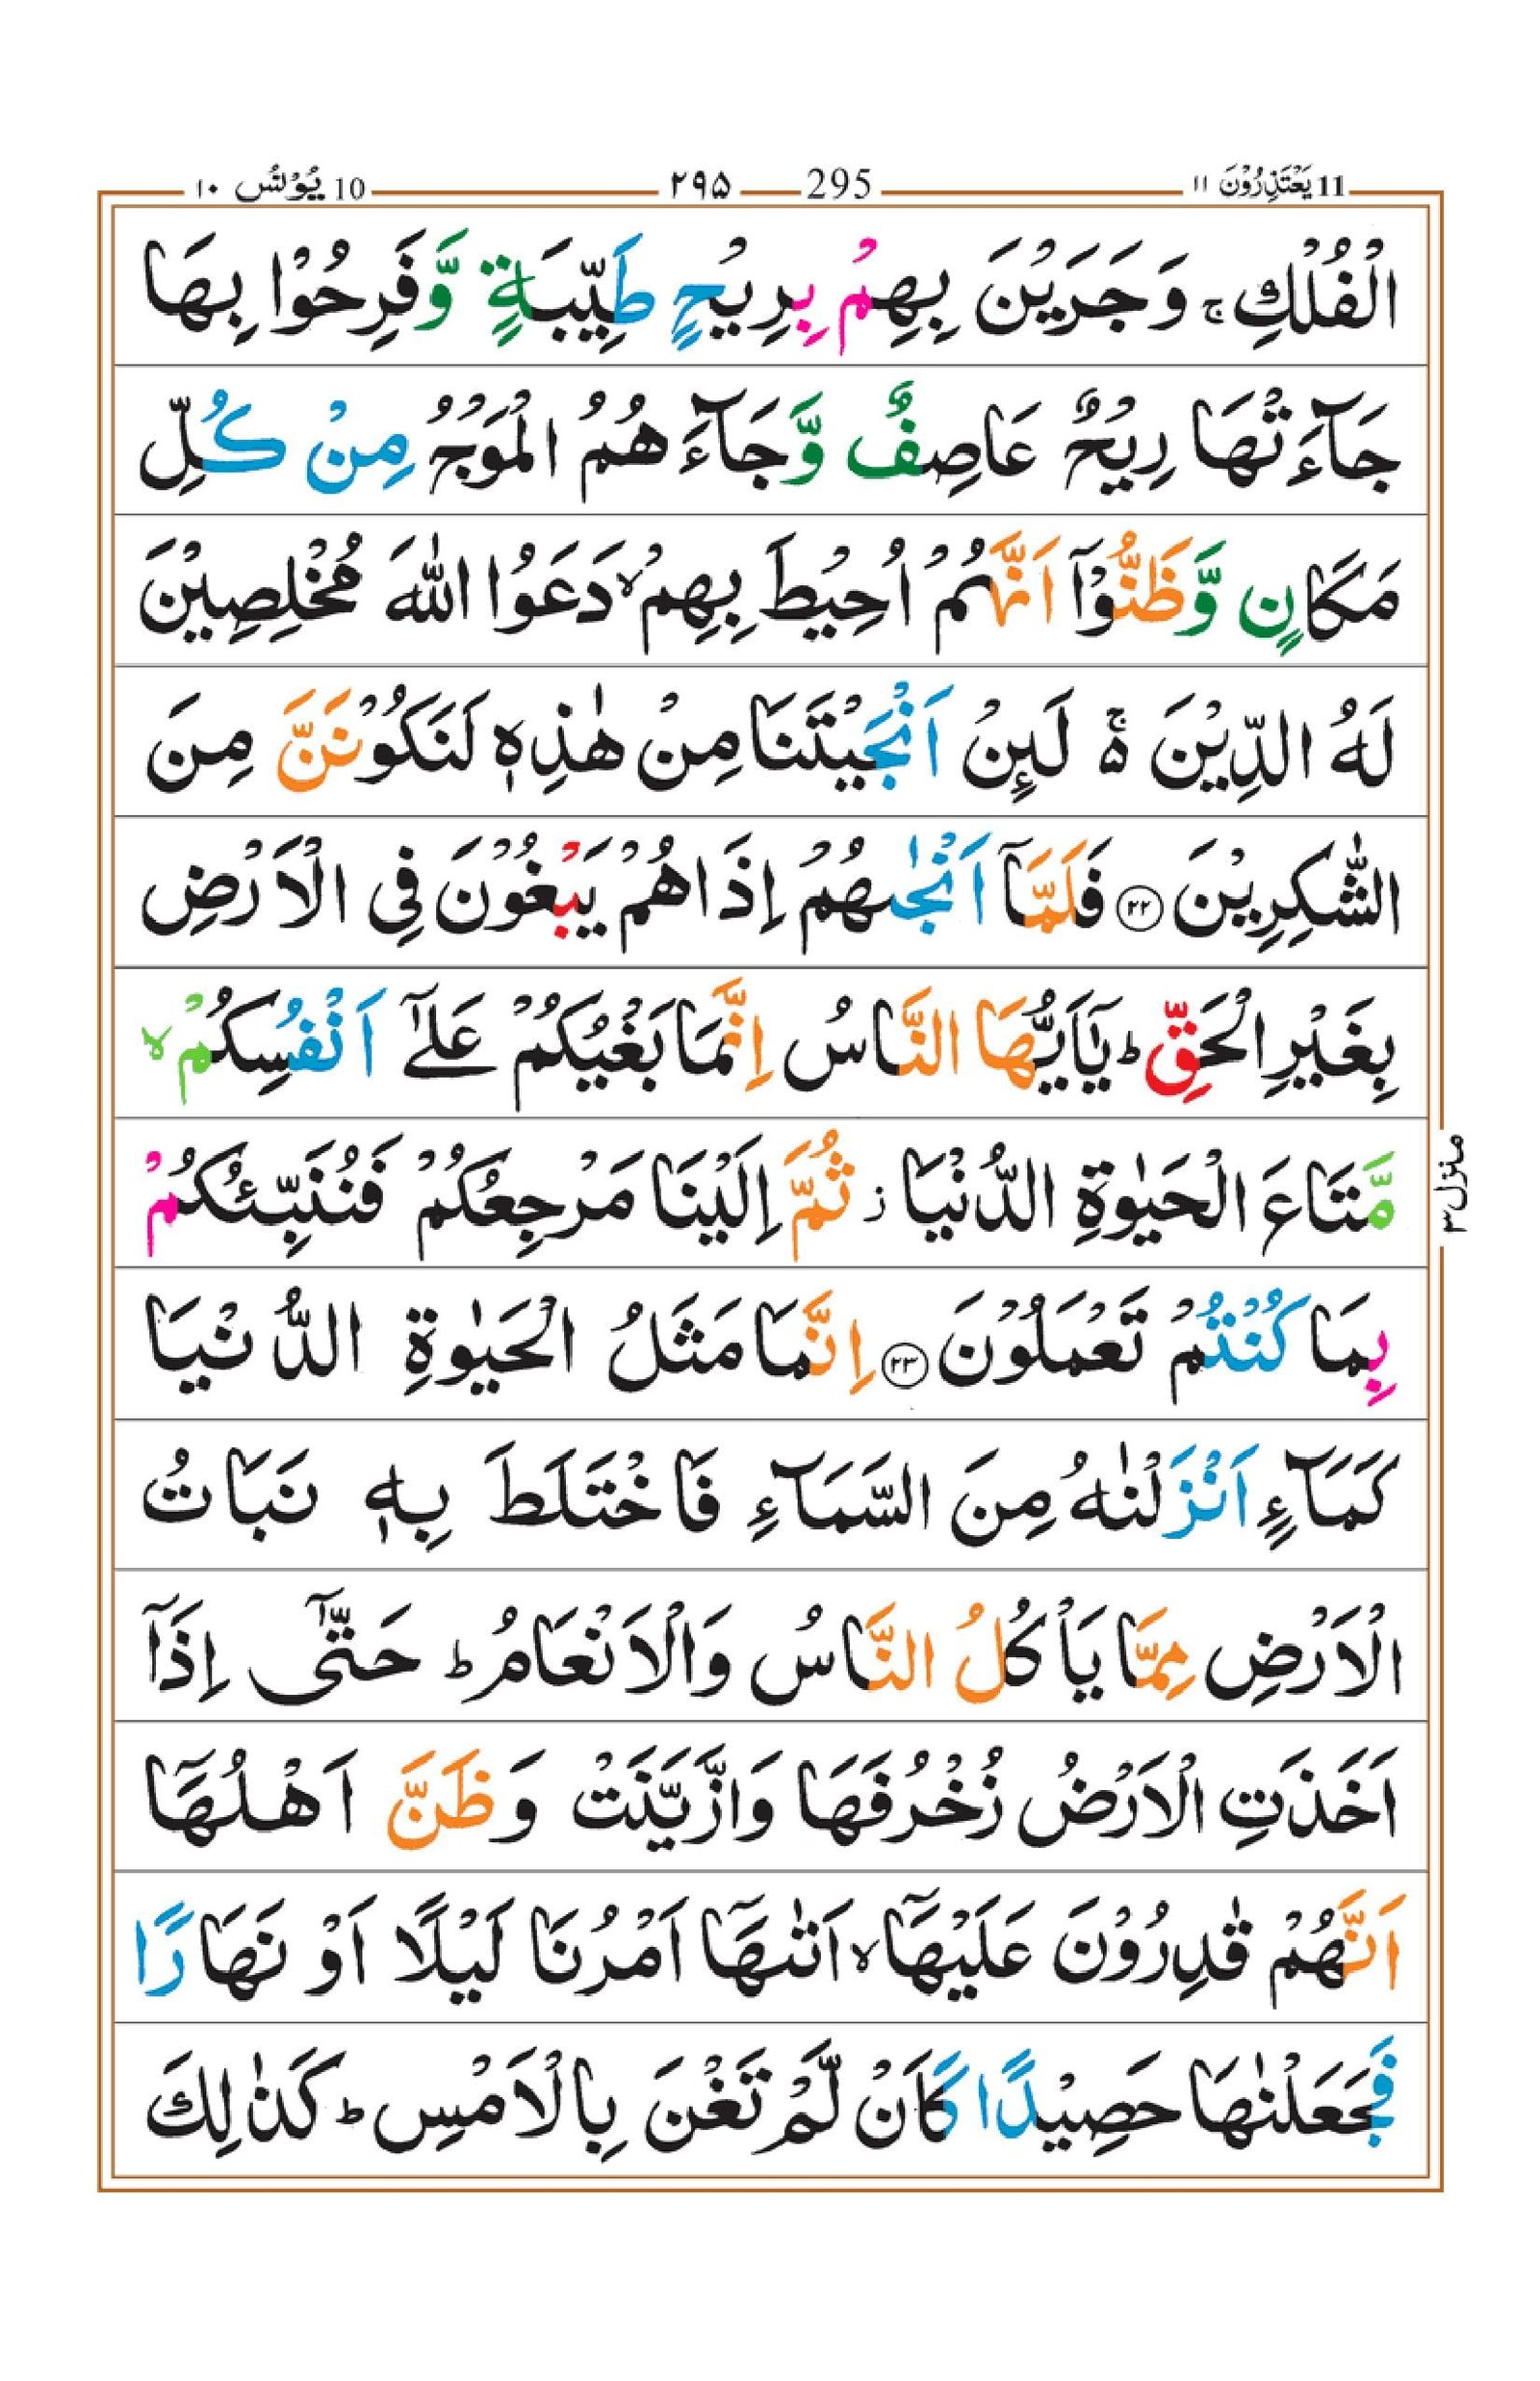 11 يَعْتَذِرُوْنَ ١١ 295 ۲۹۵ 10 يُوْنُس ١٠
الْفُلْكِ ۚ وَجَرَيْنَ بِهِمْ بِرِيْحٍ طَيِّبَةٍ وَّفَرِحُوْا بِهَا
جَآءَتْهَا رِيْحٌ عَاصِفٌ وَّجَآءَهُمُ الْمَوْجُ مِنْ كُلِّ
مَكَانٍ وَّظَنُّوْۤا اَنَّهُمْ اُحِيْطَ بِهِمْ ۙ دَعَوُا اللّٰهَ مُخْلِصِيْنَ
لَهُ الدِّيْنَ ۚ۬ لَئِنْ اَنْجَيْتَنَا مِنْ هٰذِهٖ لَنَكُوْنَنَّ مِنَ
الشّٰكِرِيْنَ ﴿۲۲﴾ فَلَمَّاۤ اَنْجٰىهُمْ اِذَا هُمْ يَبْغُوْنَ فِى الْاَرْضِ
بِغَيْرِ الْحَقِّ ؕ يٰۤاَيُّهَا النَّاسُ اِنَّمَا بَغْيُكُمْ عَلٰٓى اَنْفُسِكُمْ ۙ
مَّتَاعَ الْحَيٰوةِ الدُّنْيَا ؗ ثُمَّ اِلَيْنَا مَرْجِعُكُمْ فَنُنَبِّئُكُمْ
منزل ۳
بِمَا كُنْتُمْ تَعْمَلُوْنَ ﴿۲۳﴾ اِنَّمَا مَثَلُ الْحَيٰوةِ الدُّنْيَا
كَمَآءٍ اَنْزَلْنٰهُ مِنَ السَّمَآءِ فَاخْتَلَطَ بِهٖ نَبَاتُ
الْاَرْضِ مِمَّا يَاْكُلُ النَّاسُ وَالْاَنْعَامُ ؕ حَتّٰۤى اِذَاۤ
اَخَذَتِ الْاَرْضُ زُخْرُفَهَا وَازَّيَّنَتْ وَظَنَّ اَهْلُهَاۤ
اَنَّهُمْ قٰدِرُوْنَ عَلَيْهَاۤ ۙ اَتٰىهَاۤ اَمْرُنَا لَيْلًا اَوْ نَهَارًا
فَجَعَلْنٰهَا حَصِيْدًا كَاَنْ لَّمْ تَغْنَ بِالْاَمْسِ ؕ كَذٰلِكَ